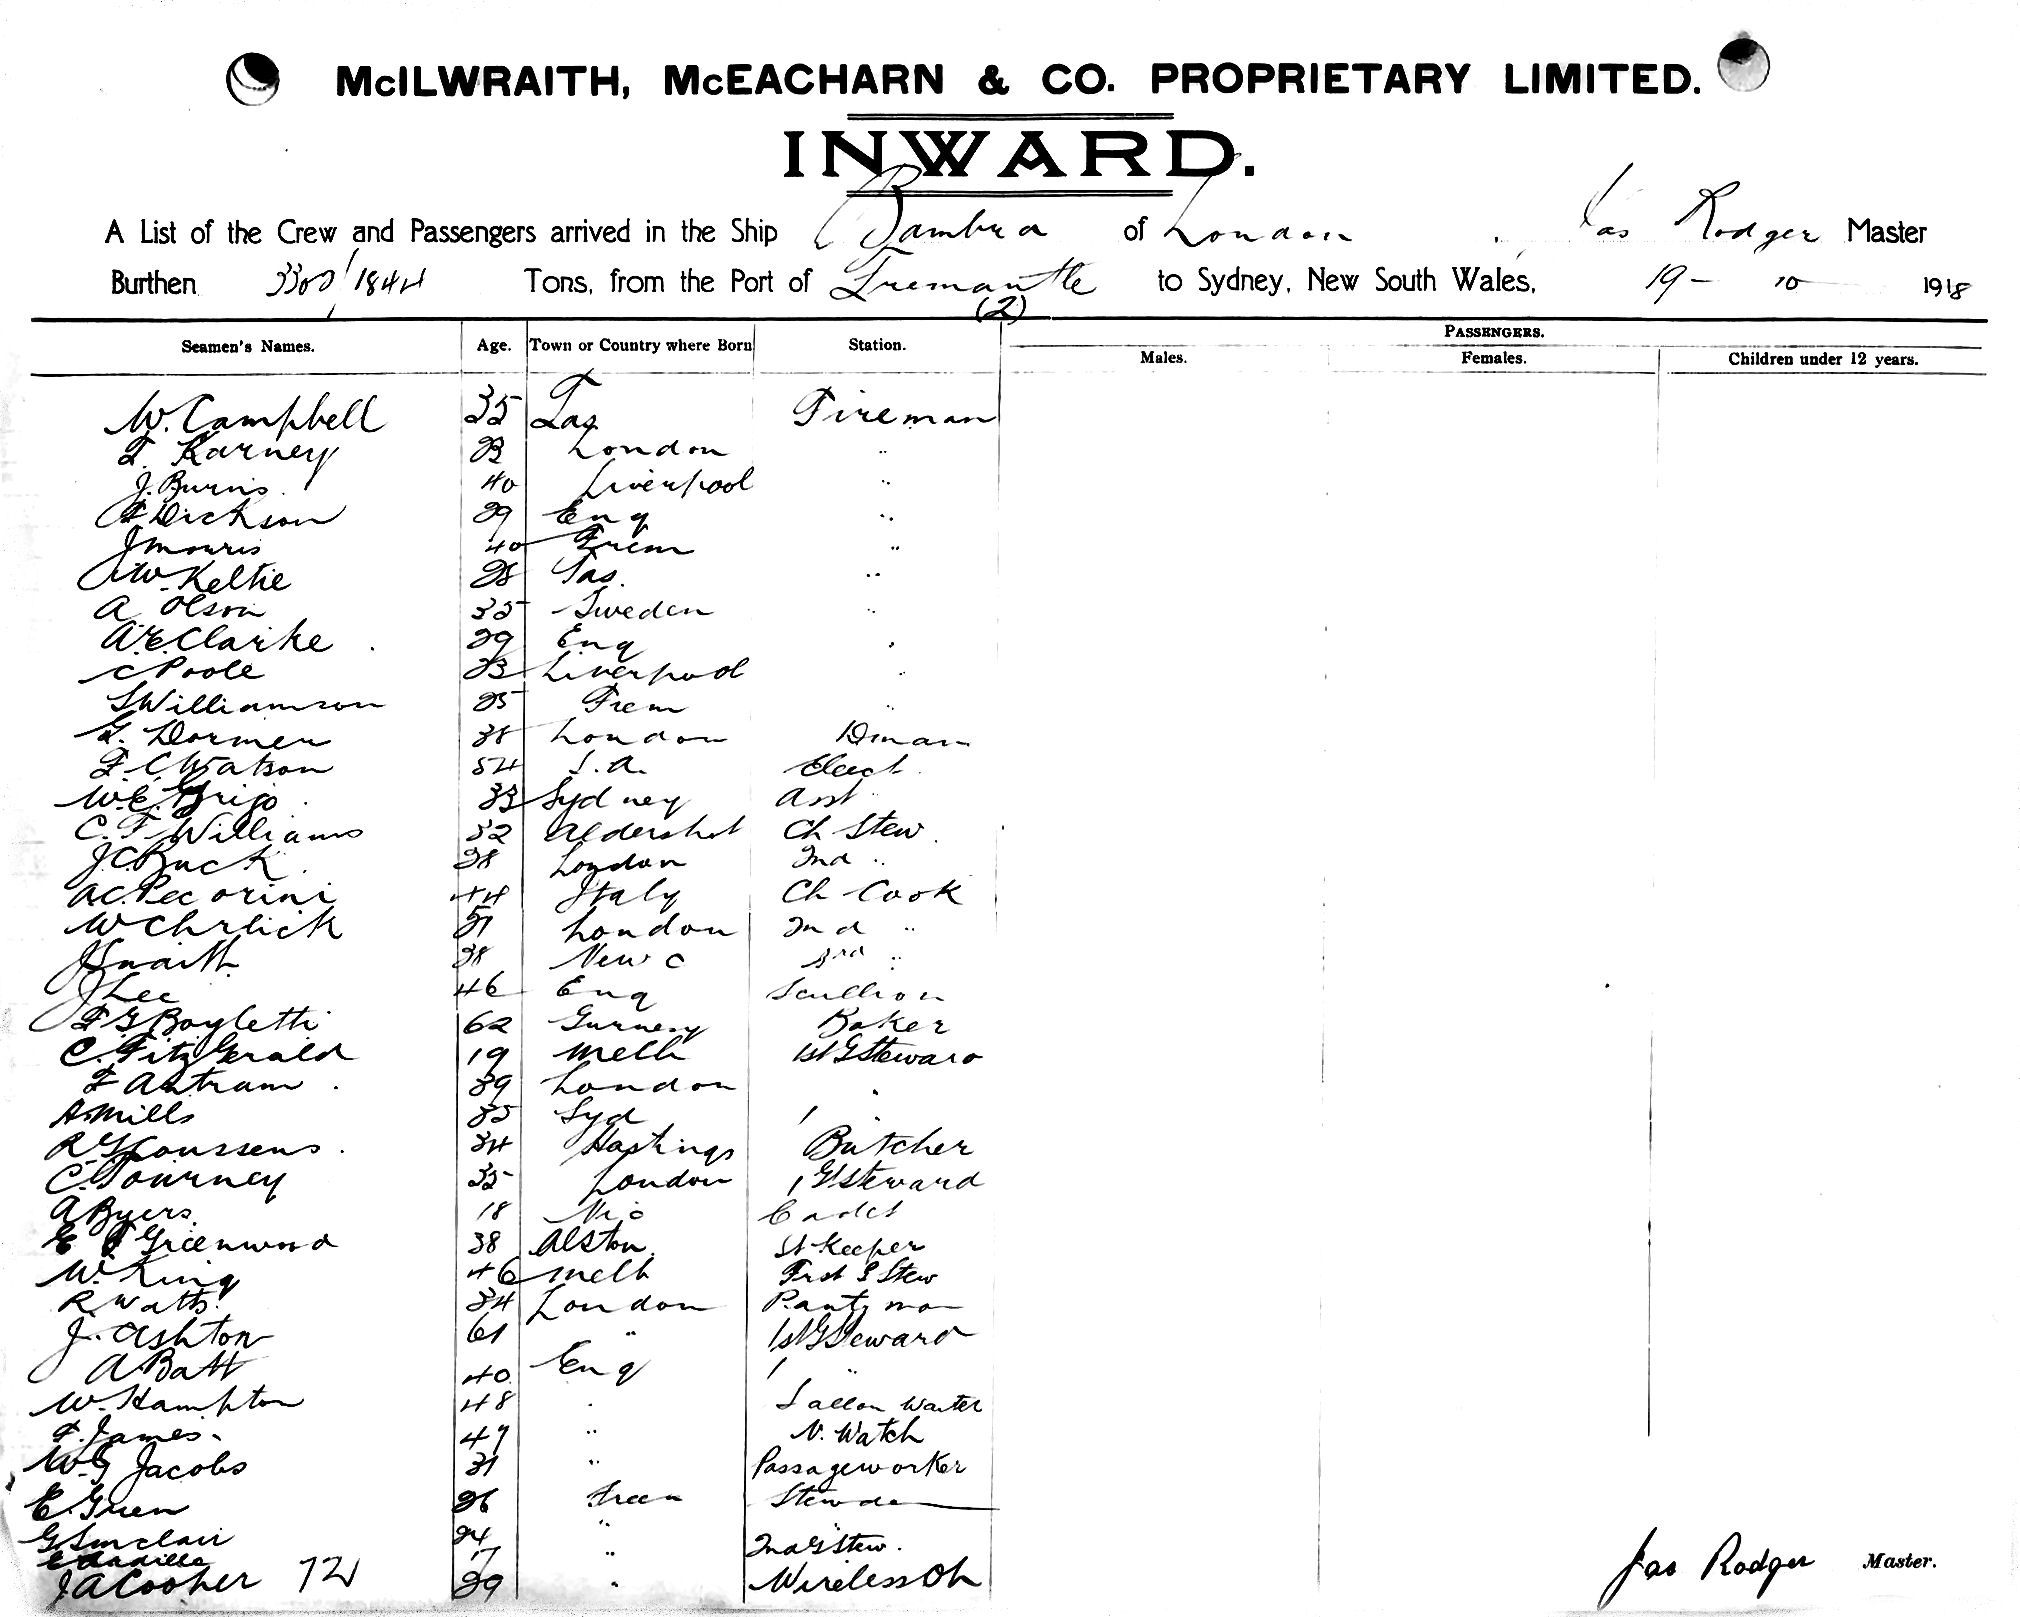 McILWRAITH, McEACHARN & CO. PROPRIETARY LIMITED.
INWARD.
A List of the Crew and Passengers arrived in the Ship Bambra of London Jas Rodger Master
Burthen 1844 Tons, from the Port of Fremantle to Sydney, New South Wales, 19 - 10 1918
(2)
Seamen's Names. Age. Town or Country where Born Station. PASSENGERS.
Males. Females. Children under 12 years.
W. Campbell 35 Tas Fireman
F. Karney London "
J. Burns 40 Liverpool "
F Dickson 29 Eng "
J Morris 40 Frem "
J W. Keltie 28 Tas. "
A Olson 35 Sweden "
A.E. Clarke 29 Eng "
C Poole 33 Liverpool "
S Williamson 25 Frem "
G. Dormer 38 London Dman
F. C. Watson 54 S.A. Elect.
W.E. 33 Sydney Asst
C. F. Williams 32 Aldershot Ch Stew.
J.C. Buck 28 London 2nd "
A C. Pecorini 44 Italy Ch Cook
W Ehrlick London 2nd "
J Snaith 38 New C 3rd "
J Lee 46 Eng Scullion
F G Boyletti 62 Gurnesy Baker
C. FitzGerald 19 Melb 1st G Steward
F Antram 39 London "
A Mills 35 Syd 1 "
R G Coussens. 34 Hastings Butcher
C. Tourney 35 London 1 G Steward
A Byers 18 Vic Cadet
E Greenwood 38 Alston. St Keeper
W. King 46 Melb Frst S Stew
R Watts. 34 London Panty man
J. Ashton 61 " 1st G Steward
A Batt 40 Eng 1 "
W. Hampton 48 " Sallon Waiter
F. James. 47 " N. Watch
W G Jacobs 31 " Passageworker
E. Green 26 Frem Stewdess
G Sinclair 24 "
17 " 2nd G Stew.
J A Cooper 72 29 " Wireless Op
Jas Rodger Master.